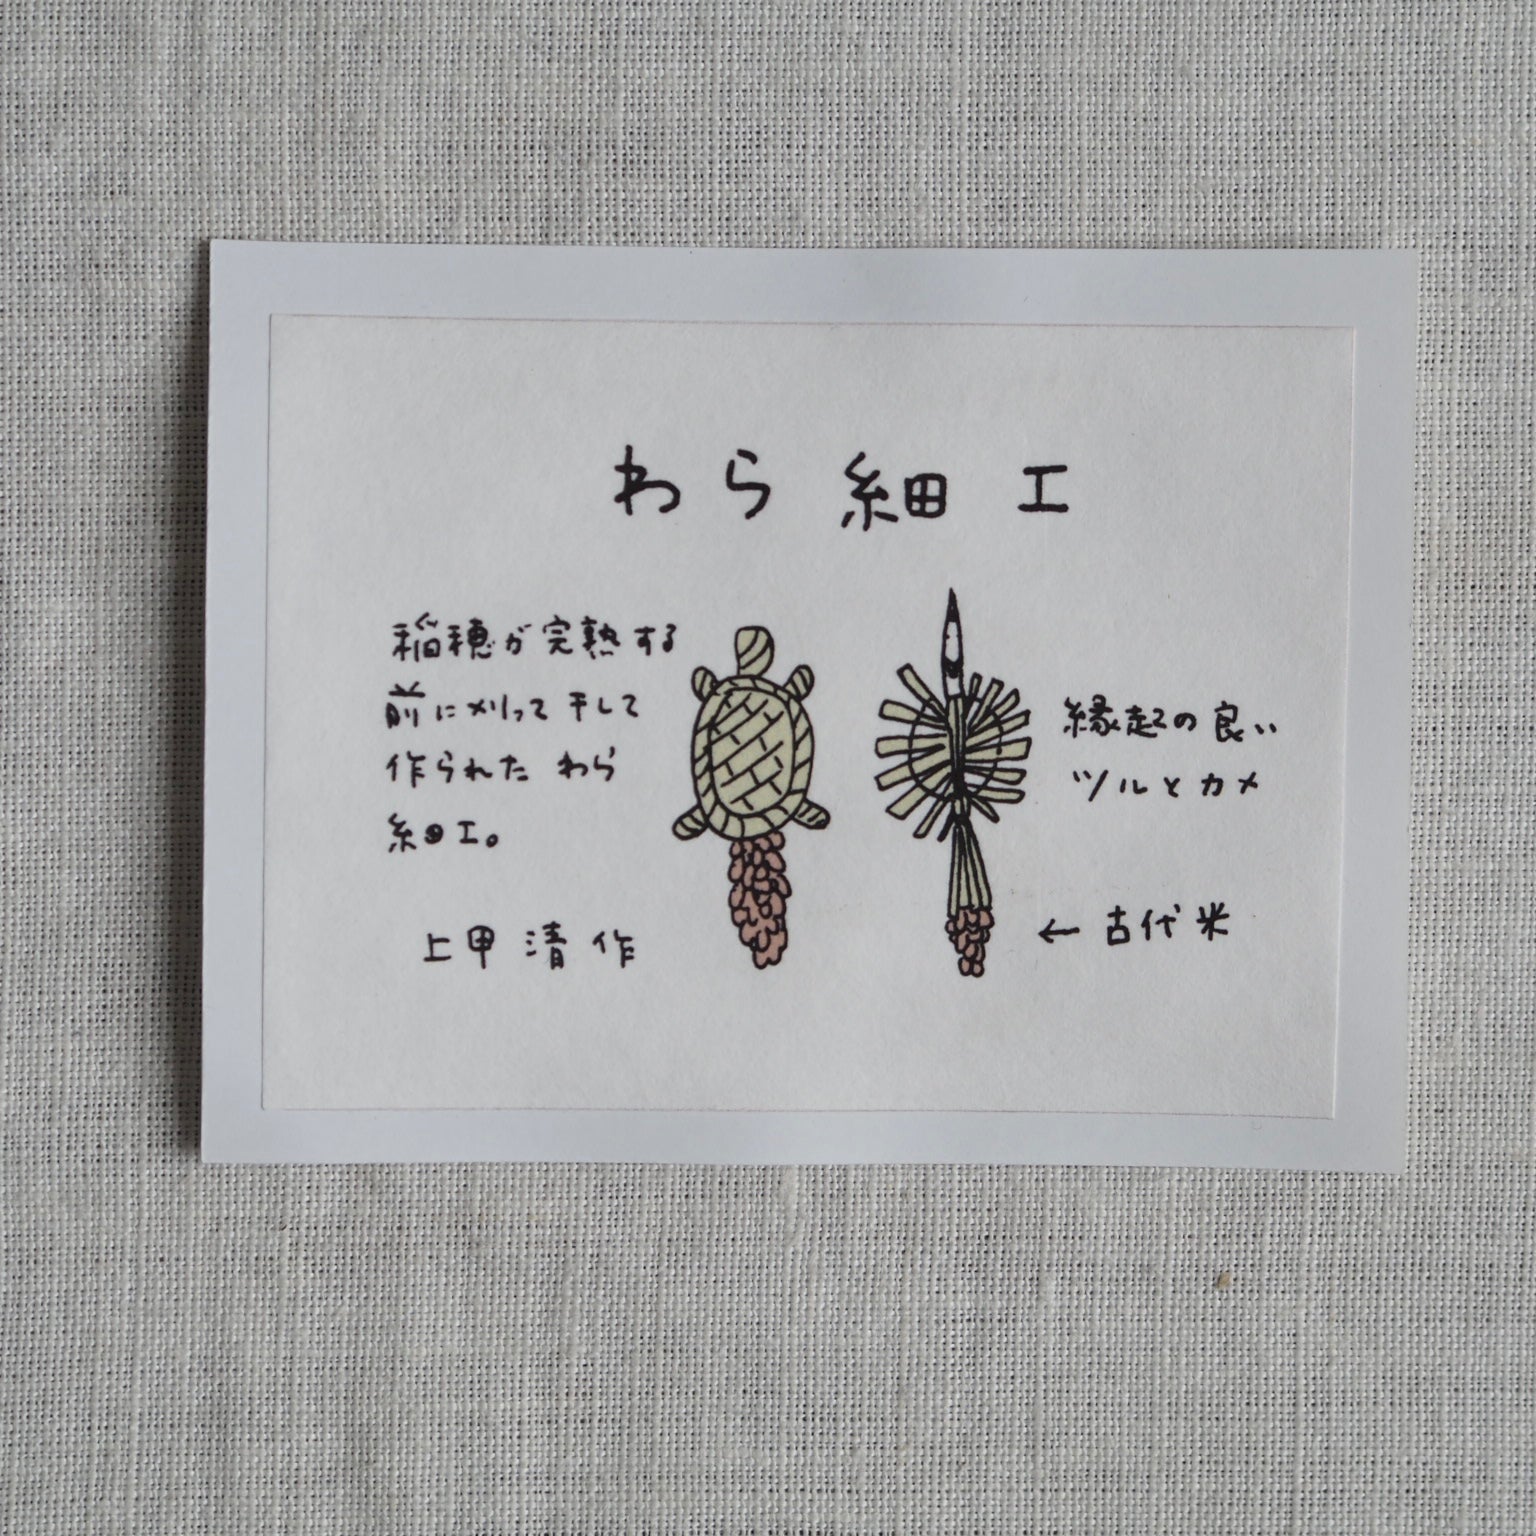 わら細工
稲穂が完熟する
前に刈って干して
作られた わら
細工。
上甲 清 作
縁起の良い
ツルとカメ
← 古代米